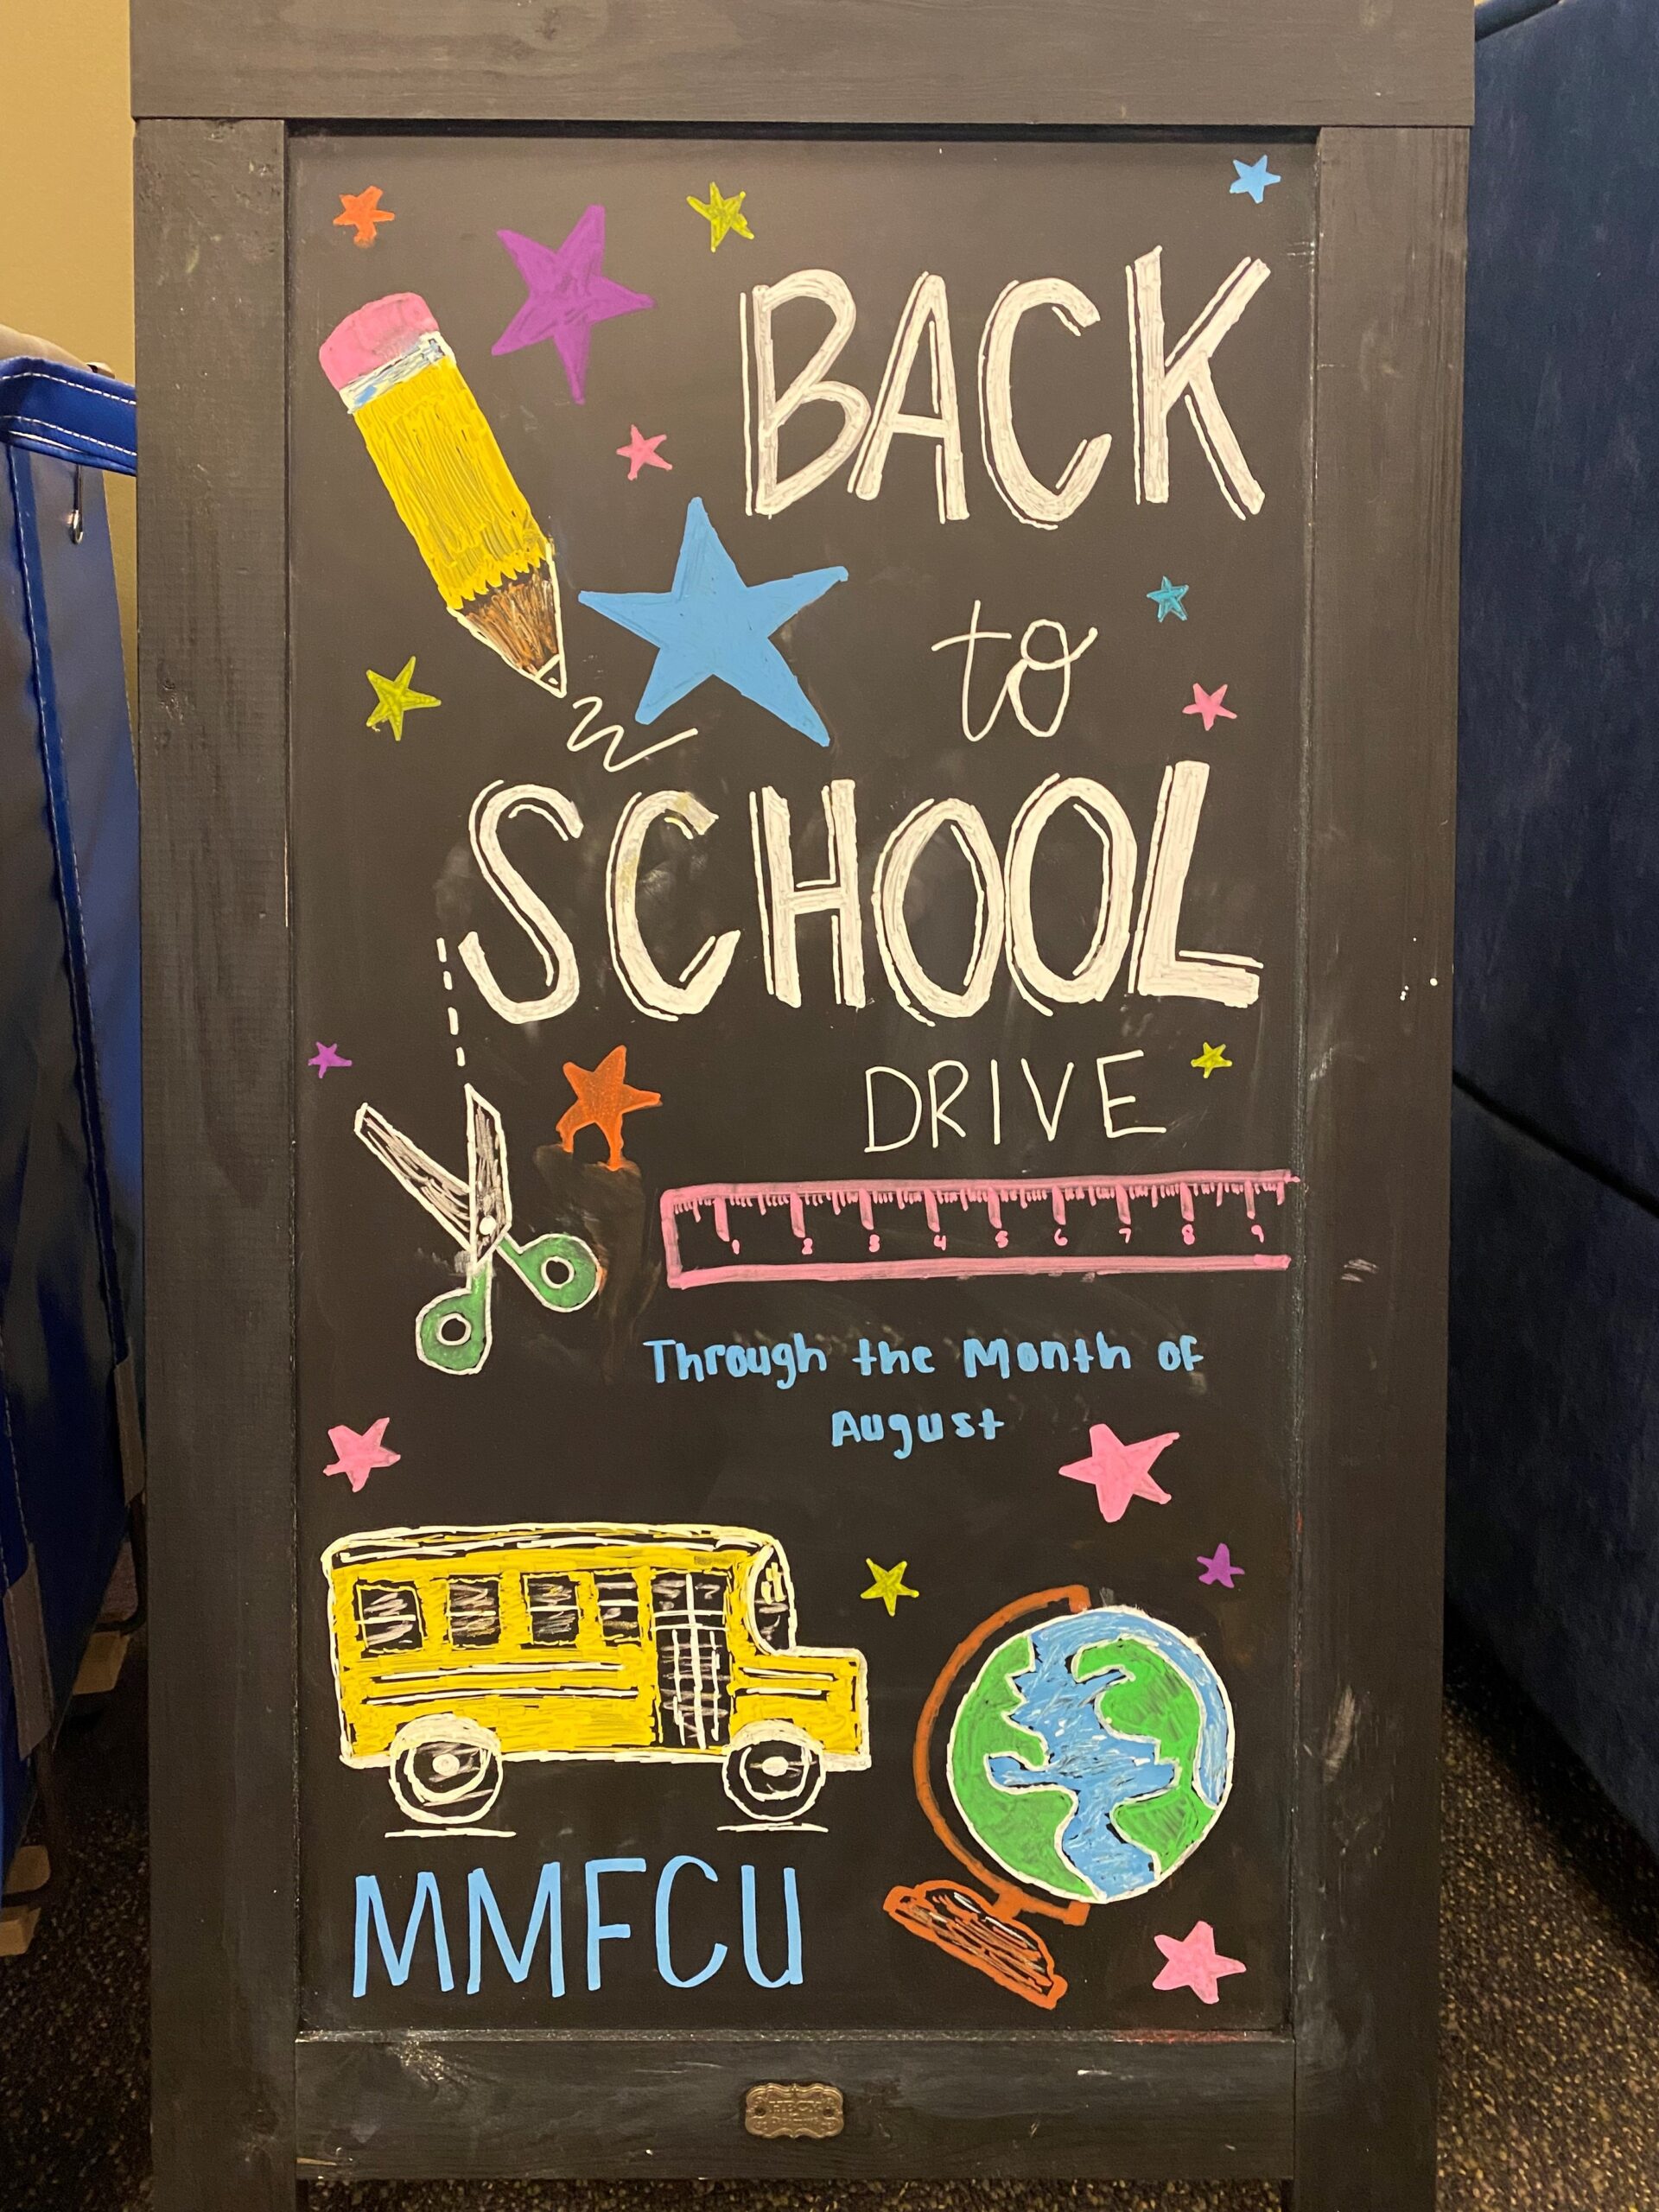 BACK
to
SCHOOL
DRIVE
1 2 3 4 5 6 7 8 9
Through the Month of
August
MMFCU